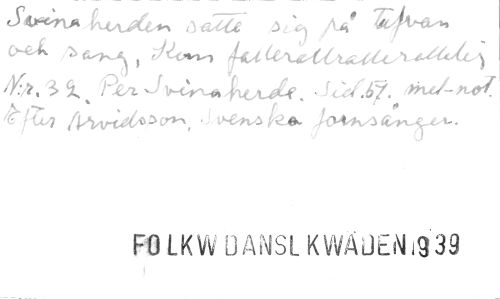 Svinaherden satte sig på tufvan
och sang, Kom fallerallrallerallelej
N:r. 32. Per Svinaherde. Sid. 57. mel-not.
Efter Arvidsson, Svenska fornsånger.
FOLKW DANSL KWÄDEN 1939